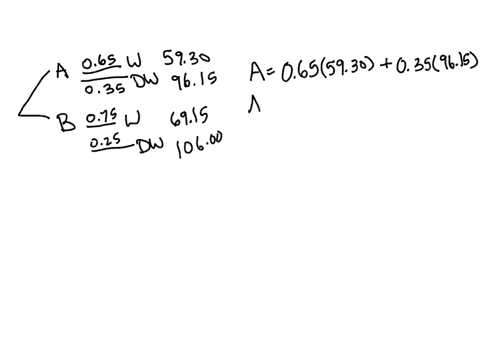 A 0.65 W 59.30
0.35 DW 96.15
B 0.75 W 69.15
0.25 DW 106.00
A = 0.65(59.30) + 0.35(96.15)